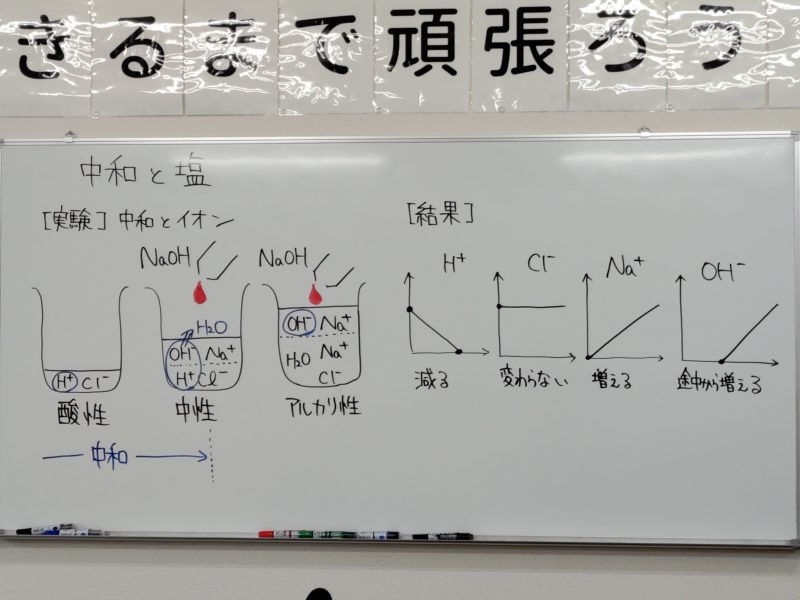 きるまで頑張ろう
中和と塩
[実験] 中和とイオン
NaOH
NaOH
H₂O
OH⁻ Na⁺
H⁺ Cl⁻
H⁺ Cl⁻
OH⁻ Na⁺
H₂O Na⁺
Cl⁻
酸性
中性
アルカリ性
中和
[結果]
H⁺
Cl⁻
Na⁺
OH⁻
減る
変わらない
増える
途中から増える